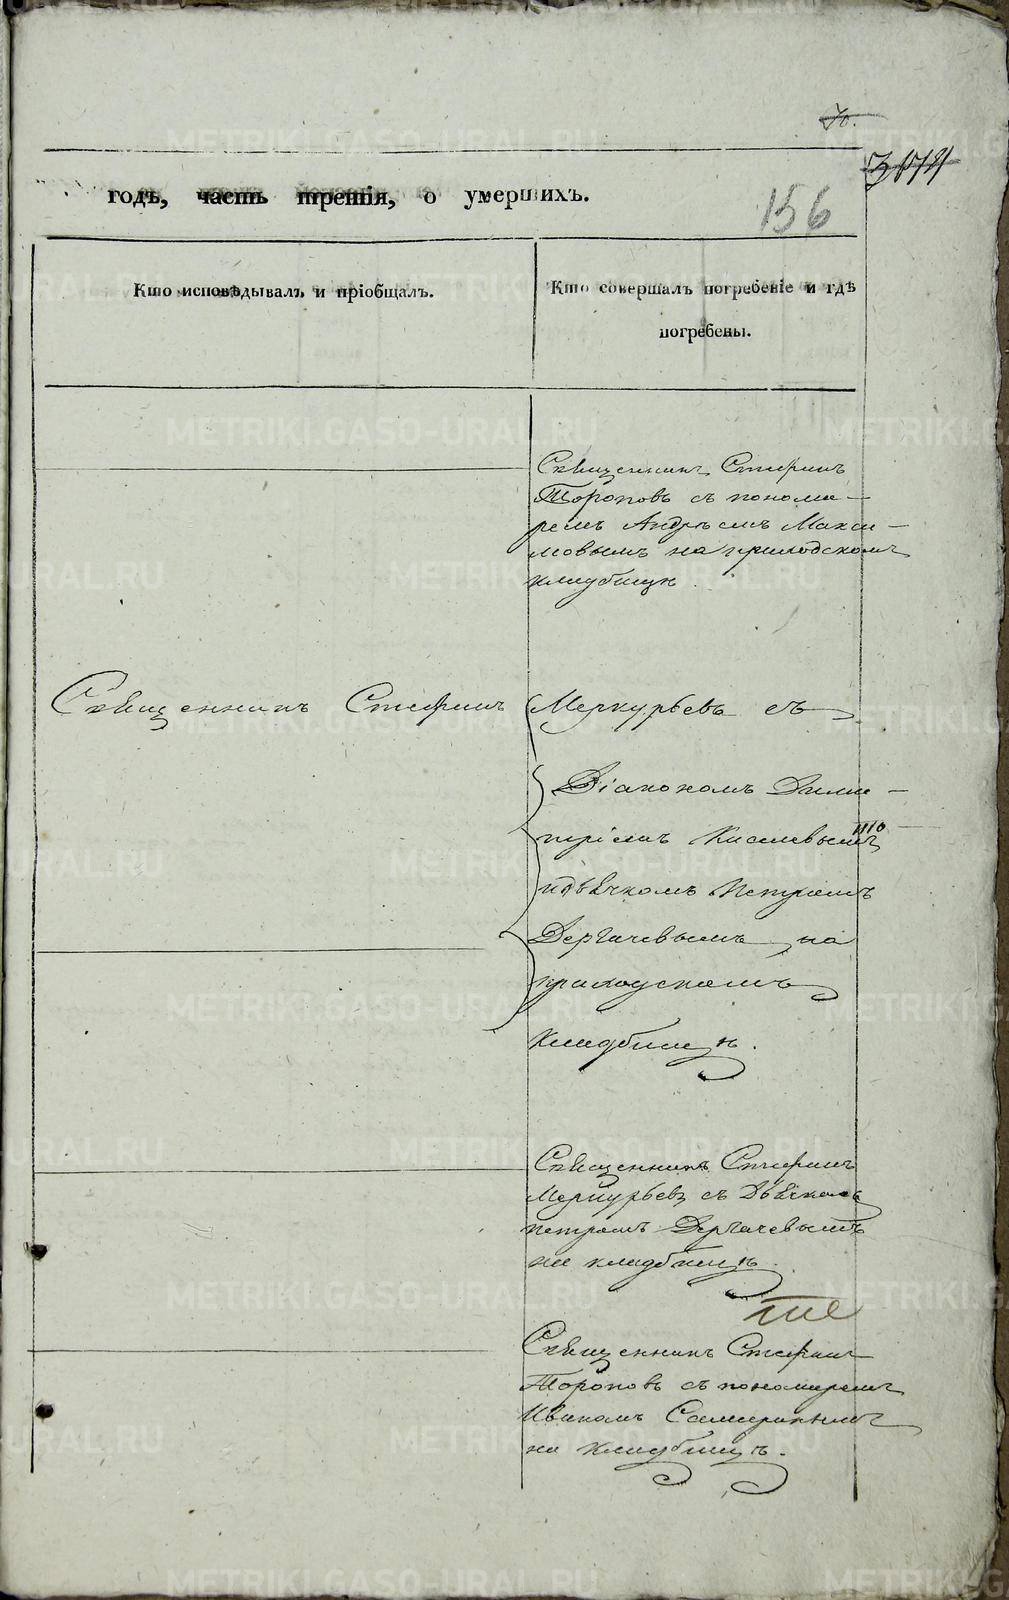 70.
годъ, часть третія, о умершихъ.
156
Кто исповѣдывалъ и пріобщалъ.
Кто совершалъ погребеніе и гдѣ
погребены.
Священникъ Стефанъ
Тороповъ съ понома-
ремъ Андреемъ Макси-
мовымъ на приходскомъ
кладбищѣ.
Священникъ Стефанъ Меркурьевъ съ
Діакономъ Дими-
тріемъ Киселевымъ
и дьячкомъ Петромъ
Дергачевымъ на
приходскомъ
кладбищѣ.
Священникъ Стефанъ
Меркурьевъ съ Дьячкомъ
Петромъ Дергачевымъ
на кладбищѣ.
Священникъ Стефанъ
Тороповъ съ пономаремъ
Иваномъ
на кладбищѣ.
METRIKI.GASO-URAL.RU